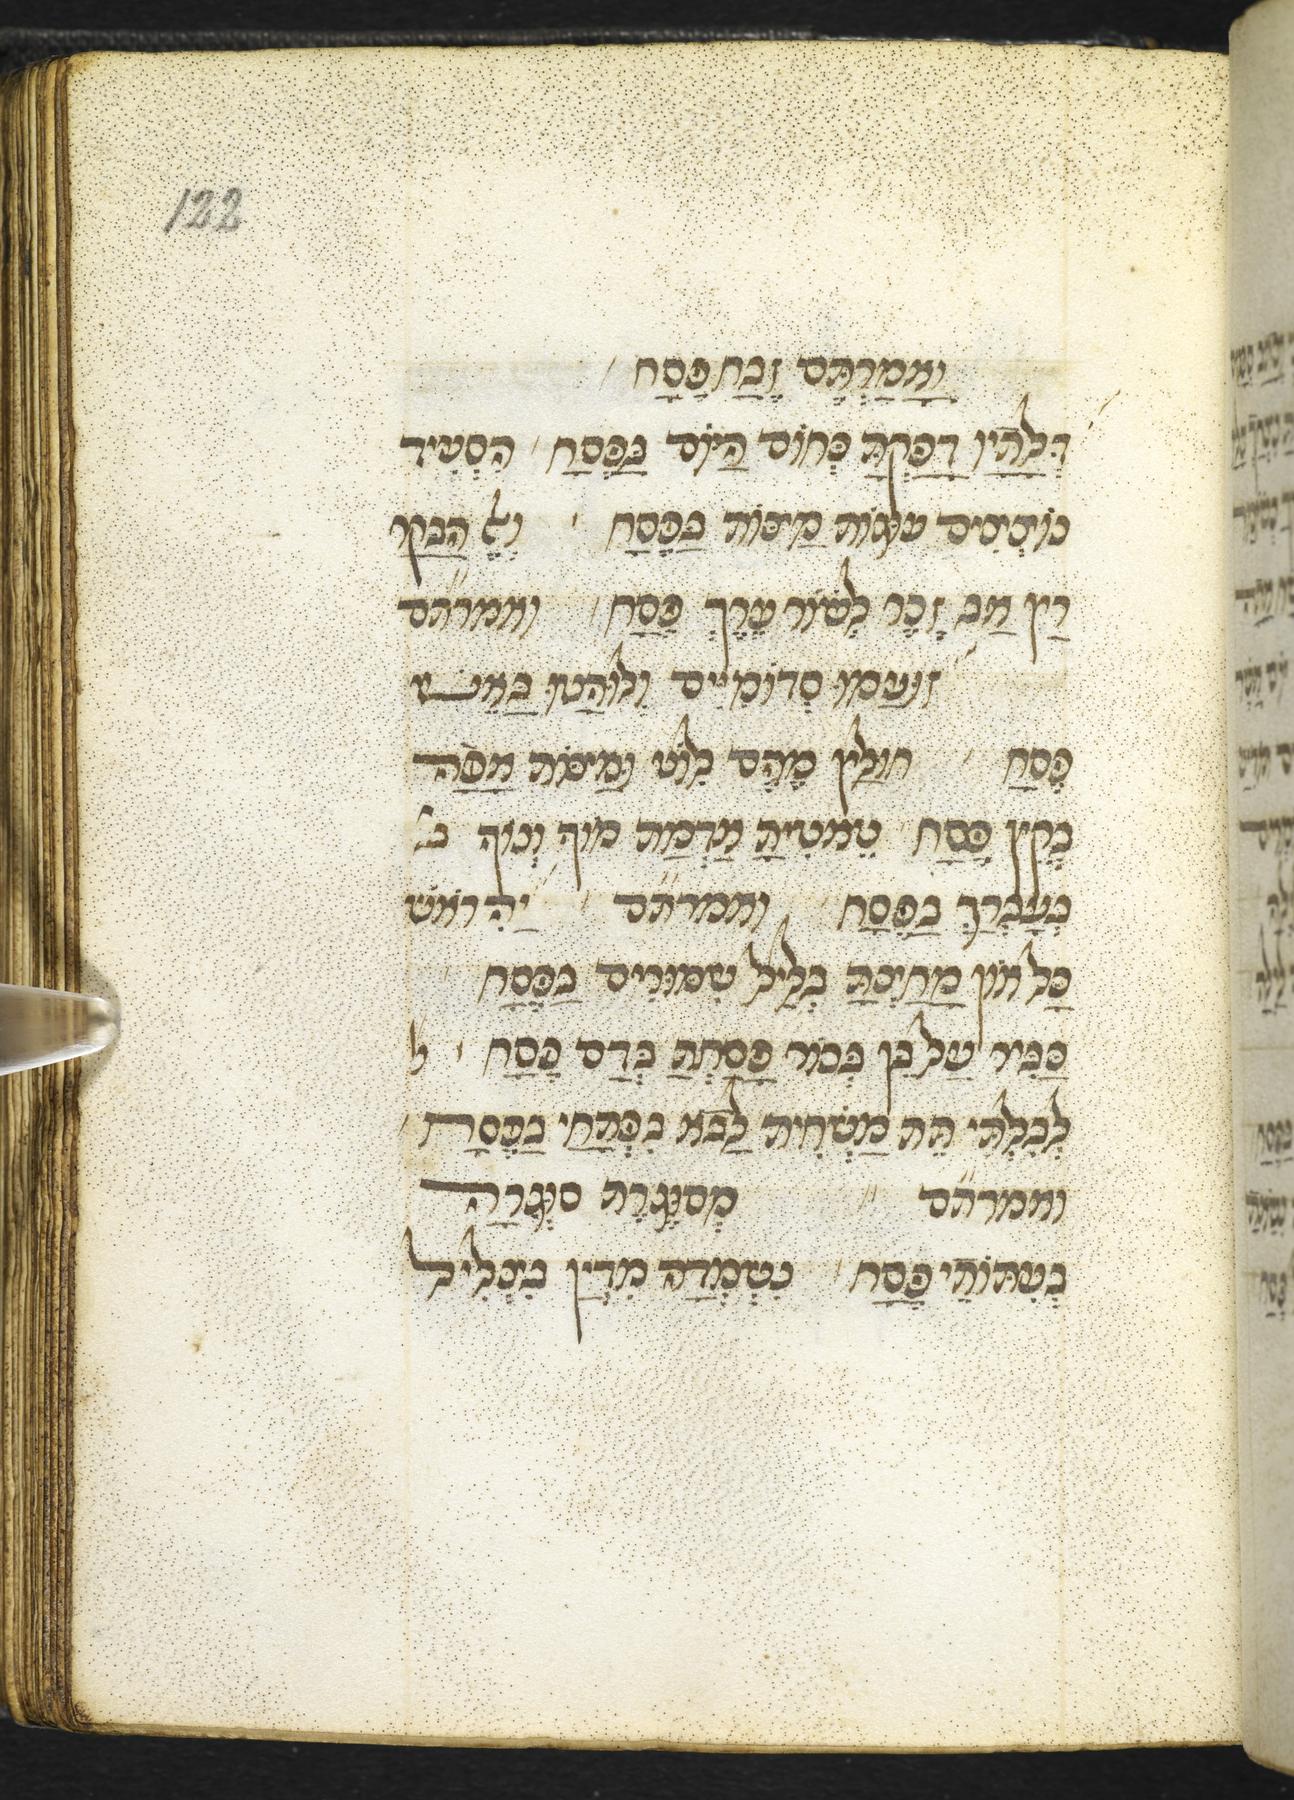 122
וַאֲמַרְתֶּם זֶבַח פֶּסַח
דְּלָתָיו דָּפַקְתָּ כְּחוֹם הַיּוֹם בַּפֶּסַח הִסְעִיד
נוֹצְצִים עֻגוֹת מַצּוֹת בַּפֶּסַח וְאֶל הַבָּקָר
רָץ זֵכֶר לְשׁוֹר עֵרֶךְ פֶּסַח ואמרתם
זוֹעֲמוּ סְדוֹמִיִּים וְלוֹהֲטוּ בָּאֵשׁ
פֶּסַח חולץ מֵהֶם לוֹט וּמַצּוֹת אָפָה
בְּקֵץ פֶּסַח טִאטֵאתָ אַדְמַת מוֹף וְנוֹף
בְּעָבְרְךָ בַּפֶּסַח ואמרתם יָהּ רֹאשׁ
כָּל אוֹן מָחַצְתָּ בְּלֵיל שִׁמּוּרִים בַּפֶּסַח
כַּבִּיר עַל בֵּן בְּכוֹר פָּסַחְתָּ בְּדַם פֶּסַח
לְבִלְתִּי תֵּת מַשְׁחִית לָבֹא בִפְתָחַי בַּפֶּסַח
ואמרתם מְסֻגֶּרֶת סֻגָּרָה
בְּעִתּוֹתֵי פֶּסַח נִשְׁמְדָה מִדְיָן בִּצְלִיל